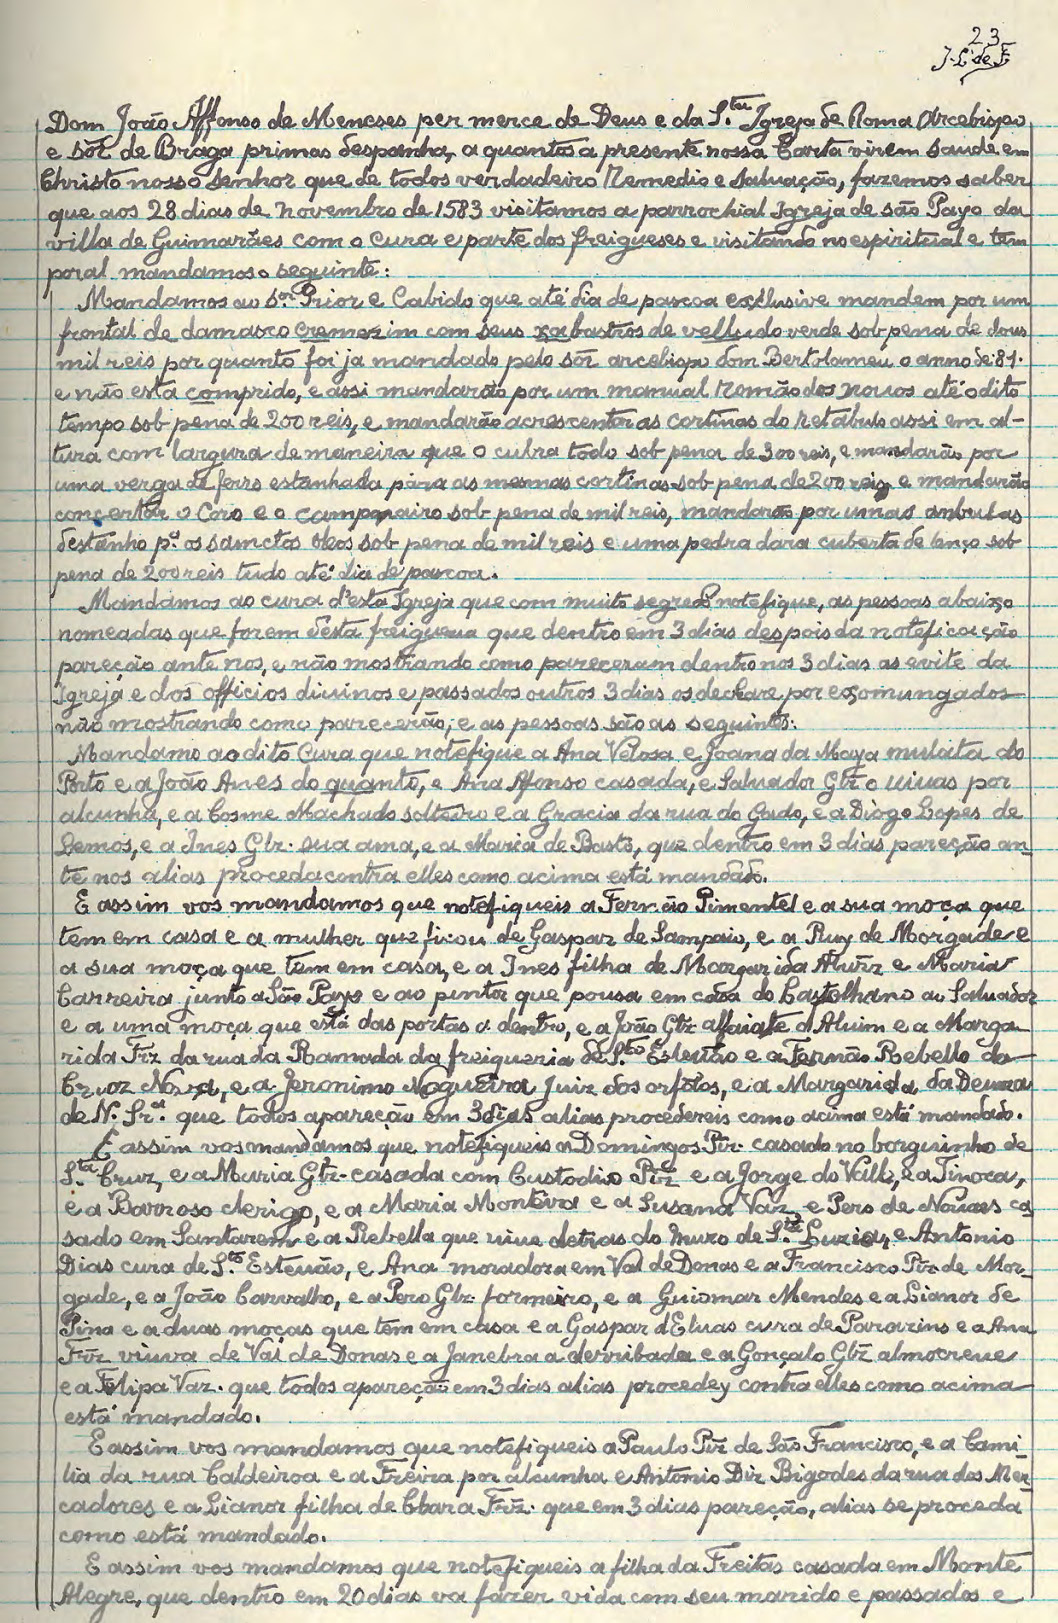 23
J. L. de F.
Dom João Affonso de Meneses per merce de Deus e da S.ta Igreja de Roma Arcebispo
e sõr de Braga primas despanha, a quantos a presente nossa Carta virem saude em
Christo nosso senhor que de todos verdadeiro Remedio e saluação, fazemos saber
que aos 28 dias de novembro de 1583 visitamos a parrochial Igreja de são Payo da
villa de Guimarães com o cura e parte dos freigueses e visitando no espiritual e tem
poral mandamos o seguinte:
Mandamos ao s.or Prior e Cabido que até dia de pascoa exclusive mandem por um
frontal de damasco cremezim com seus xabastros de velludo verde sob pena de dous
mil reis por quanto foi ja mandado pelo sõr arcebispo dom Bertolameu o anno de 81.
e não está comprido, e assi mandarão por um manual Romão dos novos até o dito
tempo sob pena de 200 reis, e mandarão acrescentar as cortinas do retabulo assi em al-
tura com largura de maneira que o cubra todo sob pena de 300 reis, e mandarão por
uma verga de ferro estanhada pàra as mesmas cortinas sob pena de 200 reis, e mandarão
concertar o Coro e o campanairo sob pena de mil reis, mandarão por umas ambulas
destanho p.a os sanctos oleos sob pena de mil reis e uma pedra dara cuberta de lenço sob
pena de 200 reis tudo até dia de pascoa.
Mandamos ao cura d'esta Igreja que com muito segredo notefique, as pessoas abaixo
nomeadas que forem desta freiguesia que dentro em 3 dias despois da noteficação
pareção ante nos, e não mostrando como pareceram dentro nos 3 dias as evite da
Igreja e dos officios divinos e passados outros 3 dias os declare por exomungados
não mostrando como parecerão, e as pessoas são as seguintes:
Mandamo ao dito Cura que notefique a Ana Velosa e Joana da Maya mulata do
Porto e a João Anes do quanto, e Ana Afonso casada, e Salvador Glz o uivas por
alcunha, e a Cosme Machado solteiro e a Gracia da rua do Gado, e a Diogo Lopes de
Lemos, e a Ines Glz. sua ama, e a Maria de Basto, que dentro em 3 dias pareção an_
te nos alias proceda contra elles como acima está mandado.
E assim vos mandamos que notefiqueis a Fernão Pimentel e a sua moça que
tem em casa e a mulher que ficou de Gaspar de Sampaio, e a Ruy de Morgade e
a sua moça que tem em casa, e a Ines filha de Margarida Alvrz e Maria
Carreira junto a São Payo e ao pintor que pousa em casa do Castelhano ao Salvador
e a uma moça que está das portas a dentro, e a João Glz alfaiate d Aluim e a Marga_
rida Frz da rua da Ramada da freigueria de S.to Estevão e a Fernão Rebello da
Cruz Nova, e a Jeronimo Nogueira Juiz dos orfãos, e a Margarida da Deveza
de N. Sr.a que todos apareção em 3 dias alias procedereis como acima está mandado.
E assim vos mandamos que notefiqueis a Domingos Piz. casado no borguinho de
S.ta Cruz, e a Maria Glz. casada com Custodio Piz e a Jorge do Valle, e a Tinoca,
e a Barroso clerigo, e a Maria Monteira e a Susana Vaz, e Pero de Novaes ca_
sado em Santarem e a Rebella que vive detras do Muro de S.ta Luzia, e Antonio
Dias cura de S.to Estevão, e Ana moradora em Val de Donas e a Francisco Piz de Mor_
gade, e a João Carvalho, e a Pero Glz. forneiro, e a Guiomar Mendes e a Lianor de
Pina e a duas moças que tem em casa e a Gaspar d'Eluas cura de Pararins e a Ana
Frz viuva de Val de Donas e a Janebra a derribada e a Gonçalo Glz almocreve
e a Felipa Vaz. que todos apareção em 3 dias alias procedey contra elles como acima
está mandado.
E assim vos mandamos que notefiqueis a Paulo Piz de São Francisco, e a Cami_
lia da rua Caldeiroa e a Freira por alcunha e Antonio Diz Bigodes da rua dos Mer_
cadores e a Lianor filha de Clara Frz. que em 3 dias pareção, alias se proceda
como está mandado.
E assim vos mandamos que notefiqueis a filha da Freitas casada em Monte
Alegre, que dentro em 20 dias va fazer vida com seu marido e passados e